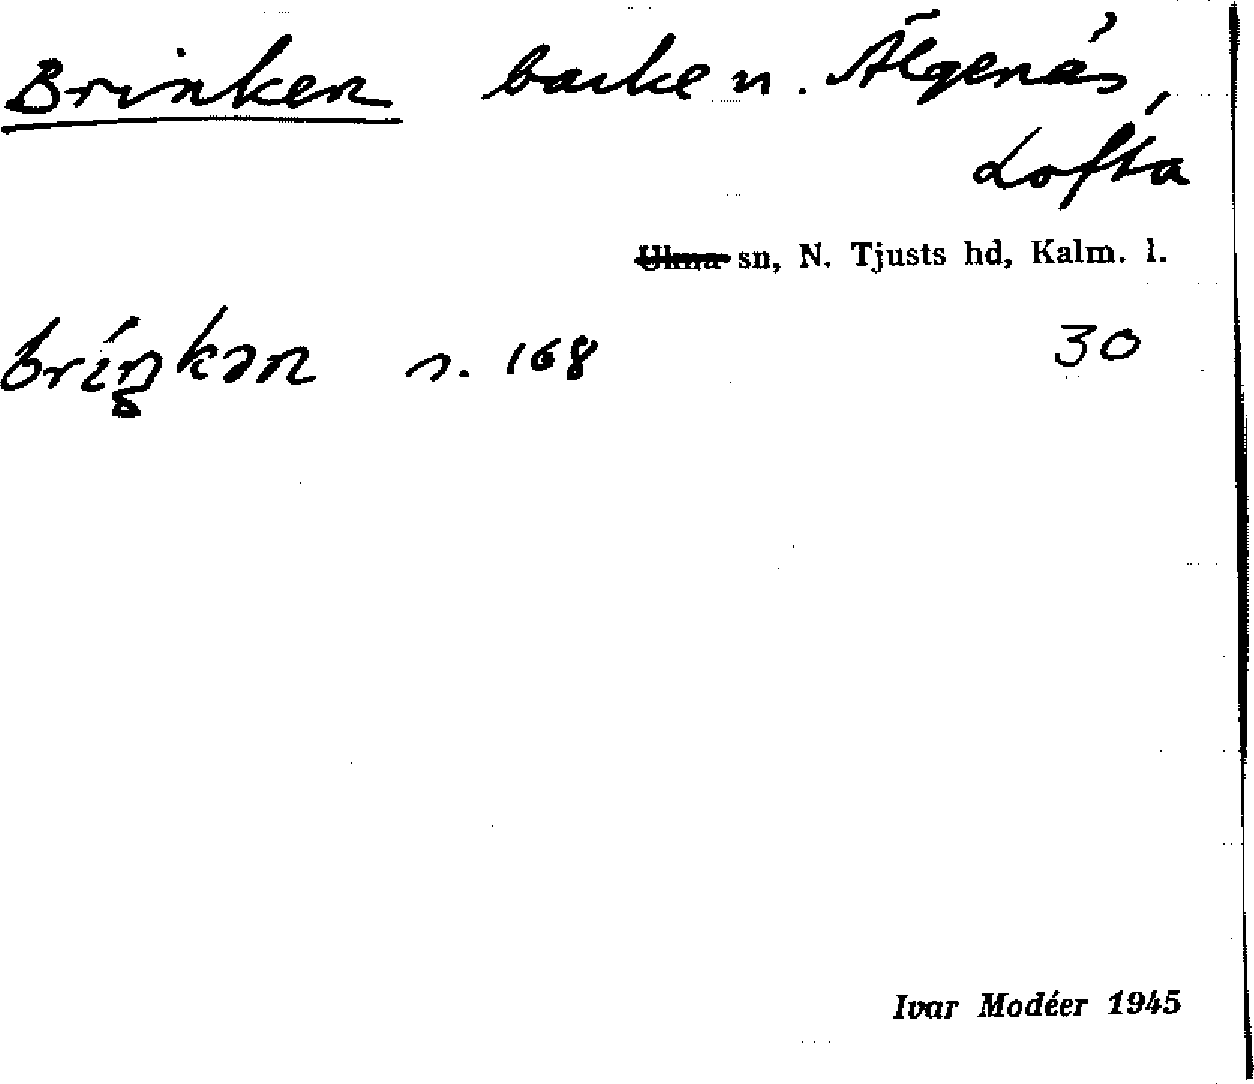 Brinken backe n. Älgenäs,
Lofta
Ukna sn, N. Tjusts hd, Kalm. l.
bríŋkən n. 168 30
Ivar Modéer 1945